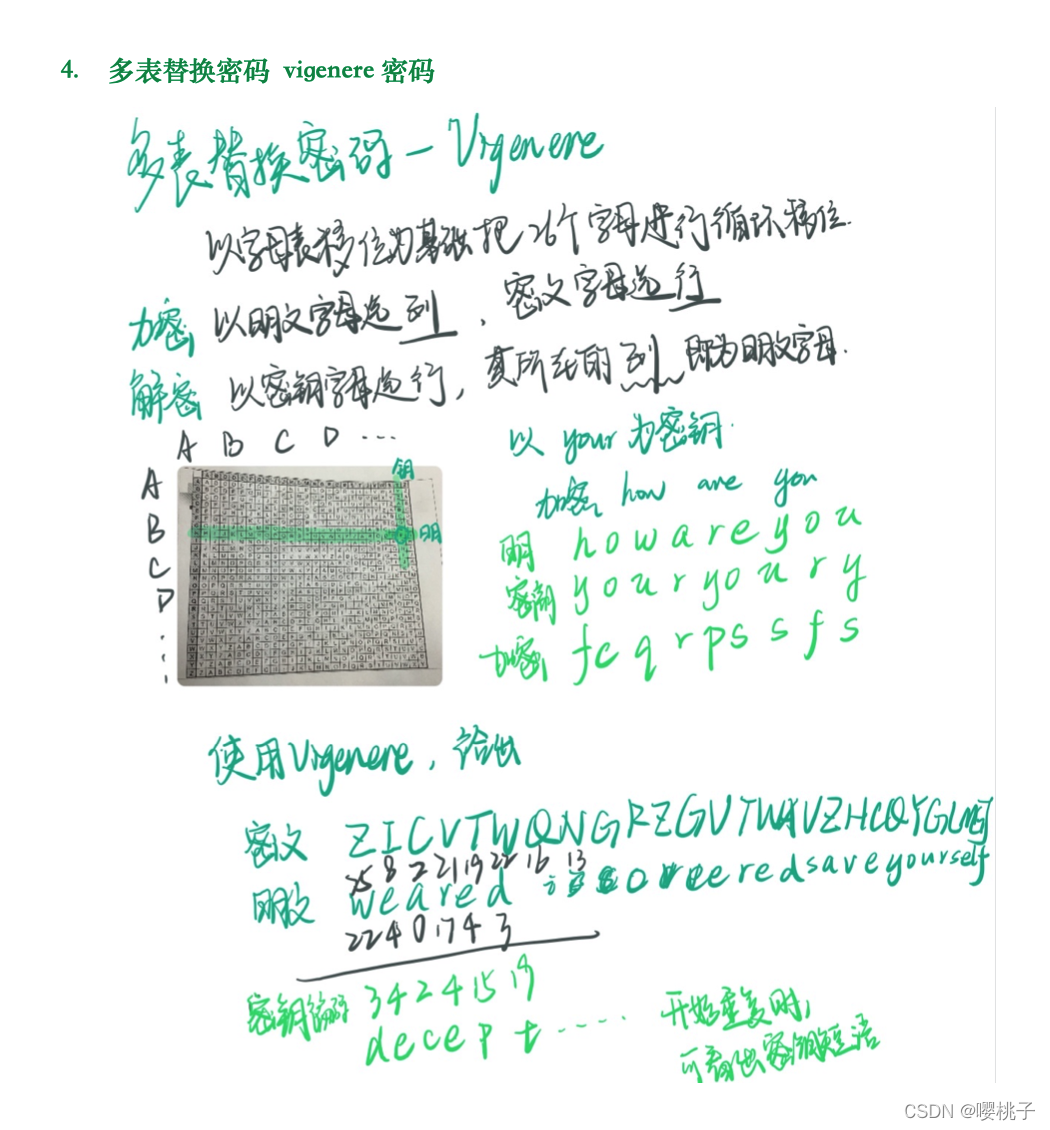 4. 多表替换密码 vigenere 密码
多表替换密码 — Vigenere
以字母表移位为基础把26个字母进行循环移位.
加密 以明文字母选列, 密文字母选行
解密 以密钥字母选行, 其所在的列即为明文字母.
A B C D ...
A
B
C
D
钥
明
以 your 为密钥.
加密 how are you
明 h o w a r e y o u
密钥 y o u r y o u r y
加密 f c q r p s s f s
使用Vigenere, 给出
密文 ZICVTWQNGRZGVTWAVZHCQYGLMGJ
25 8 2 21 19 22 16 13
明文 weared eredsaveyourself
22 4 0 17 4 3
密钥编码 3 4 2 4 15 19
d e c e p t ......
开始重复时,
可看出密钥短语
CSDN @嘤桃子